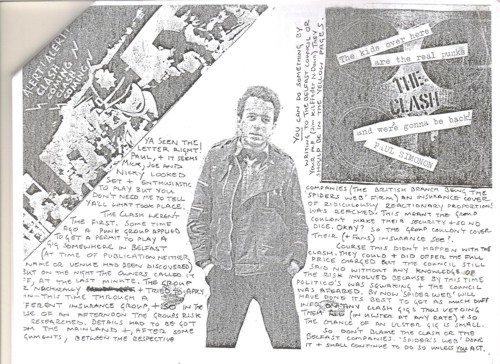 ALERT! ALERT!
CLASH IN
COMING
OVER
COMMON
YA SEEN THE
LETTER RIGHT!
PAUL, + IT SEEMS
MICK, JOE AND
NICKY LOOKED
SET + ENTHUSIASTIC
TO PLAY BUT YOU
DON'T NEED ME TO TELL
YA'LL WHAT TOOK PLACE.
THE CLASH WEREN'T
THE FIRST. SOME TIME
AGO A PUNK GROUP APPLIED
TO GET A PERMIT TO PLAY A
GIG SOMEWHERE IN BELFAST
(AT TIME OF PUBLICATION NEITHER
NAME OR VENUE HAD BEEN DISCOVERED)
BUT ON THE NIGHT THE OWNERS CALLED IT
OFF, AT THE LAST MINUTE. THE GROUP
+ TRIED TO APPLY
THIS TIME THROUGH A
FERENT INSURANCE GROUP, IN THE
OF AN AFTERNOON THE GROUPS RISK
RESEARCHED. DETAILS HAD TO BE GOT
FROM THE MAINLAND + AFTER SOME
GUMENTS, BETWEEN THE RESPECTIVE
YOU CAN DO SOMETHING BY
WRITING TO THE BELFAST COUNCIL OR
YOUR M.P. THEY
SHOULD BE IN THE YELLOW PAGES.
The kids over here
are the real punks
THE
CLASH
and we're gonna be back!
PAUL SIMONON
COMPANIES (THE BRITISH BRANCH BEING THE
'SPIDERS WEB' FIRM) AN INSURANCE COVER
OF RIDICULOUSLY REACTIONARY PROPORTIONS
WAS REACHED. THIS MEANT THE GROUP
COULDN'T MAKE THEIR SECURITY + SO NO
DICE. OKAY? SO THE GROUP COULDN'T COVER
THEIR (+ FANS) INSURANCE SEE!
COURSE THIS DIDN'T HAPPEN WITH THE
CLASH. THEY COULD + DID OFFER THE FULL
PRICE CHARGED BUT THE COUNCIL STILL
SAID NO WITHOUT ANY KNOWLEDGE OF
THE RISK INVOLVED BECAUSE BY THIS TIME
POLITICO'S WAS SQUARKING + THE COUNCIL
WAS AFEARED. BY NOW 'SPIDERS WEB', WILL
HAVE DONE ITS BEST TO GET AS MUCH DUFF
INFO ON ANY CLASH GIGS THUS VETOING
THEM (IN ULSTER AT ANY RATE) + SO
THE CHANCE OF AN ULSTER GIG IS SMALL.
SO DON'T BLAME THE CLASH OR THE
BELFAST COMPANIES. 'SPIDER'S WEB' DONE
IT + SHALL CONTINUE TO DO SO UNLESS YOU ACT.